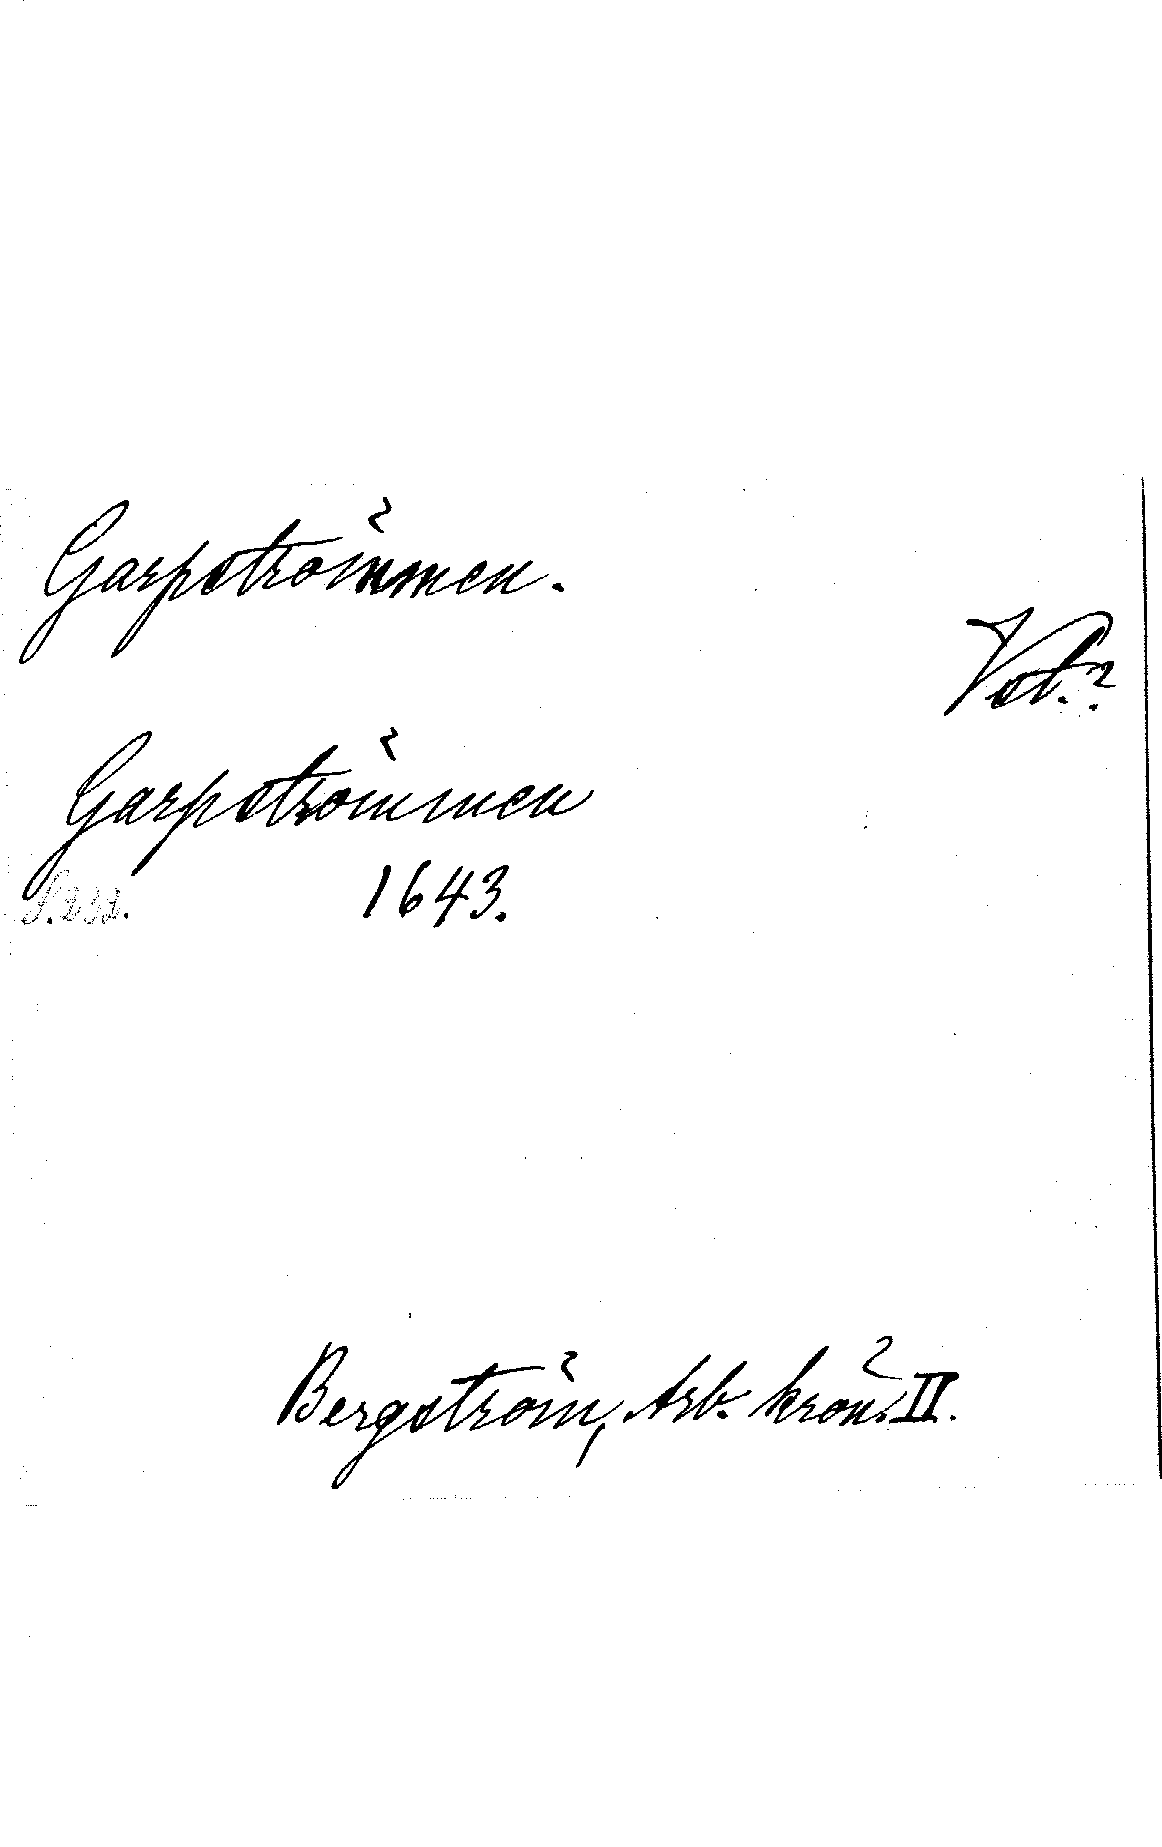 Garpströmmen.
Vstl.?
Garpströmmen
S. 232. 1643.
Bergström, Arb. krön. II.